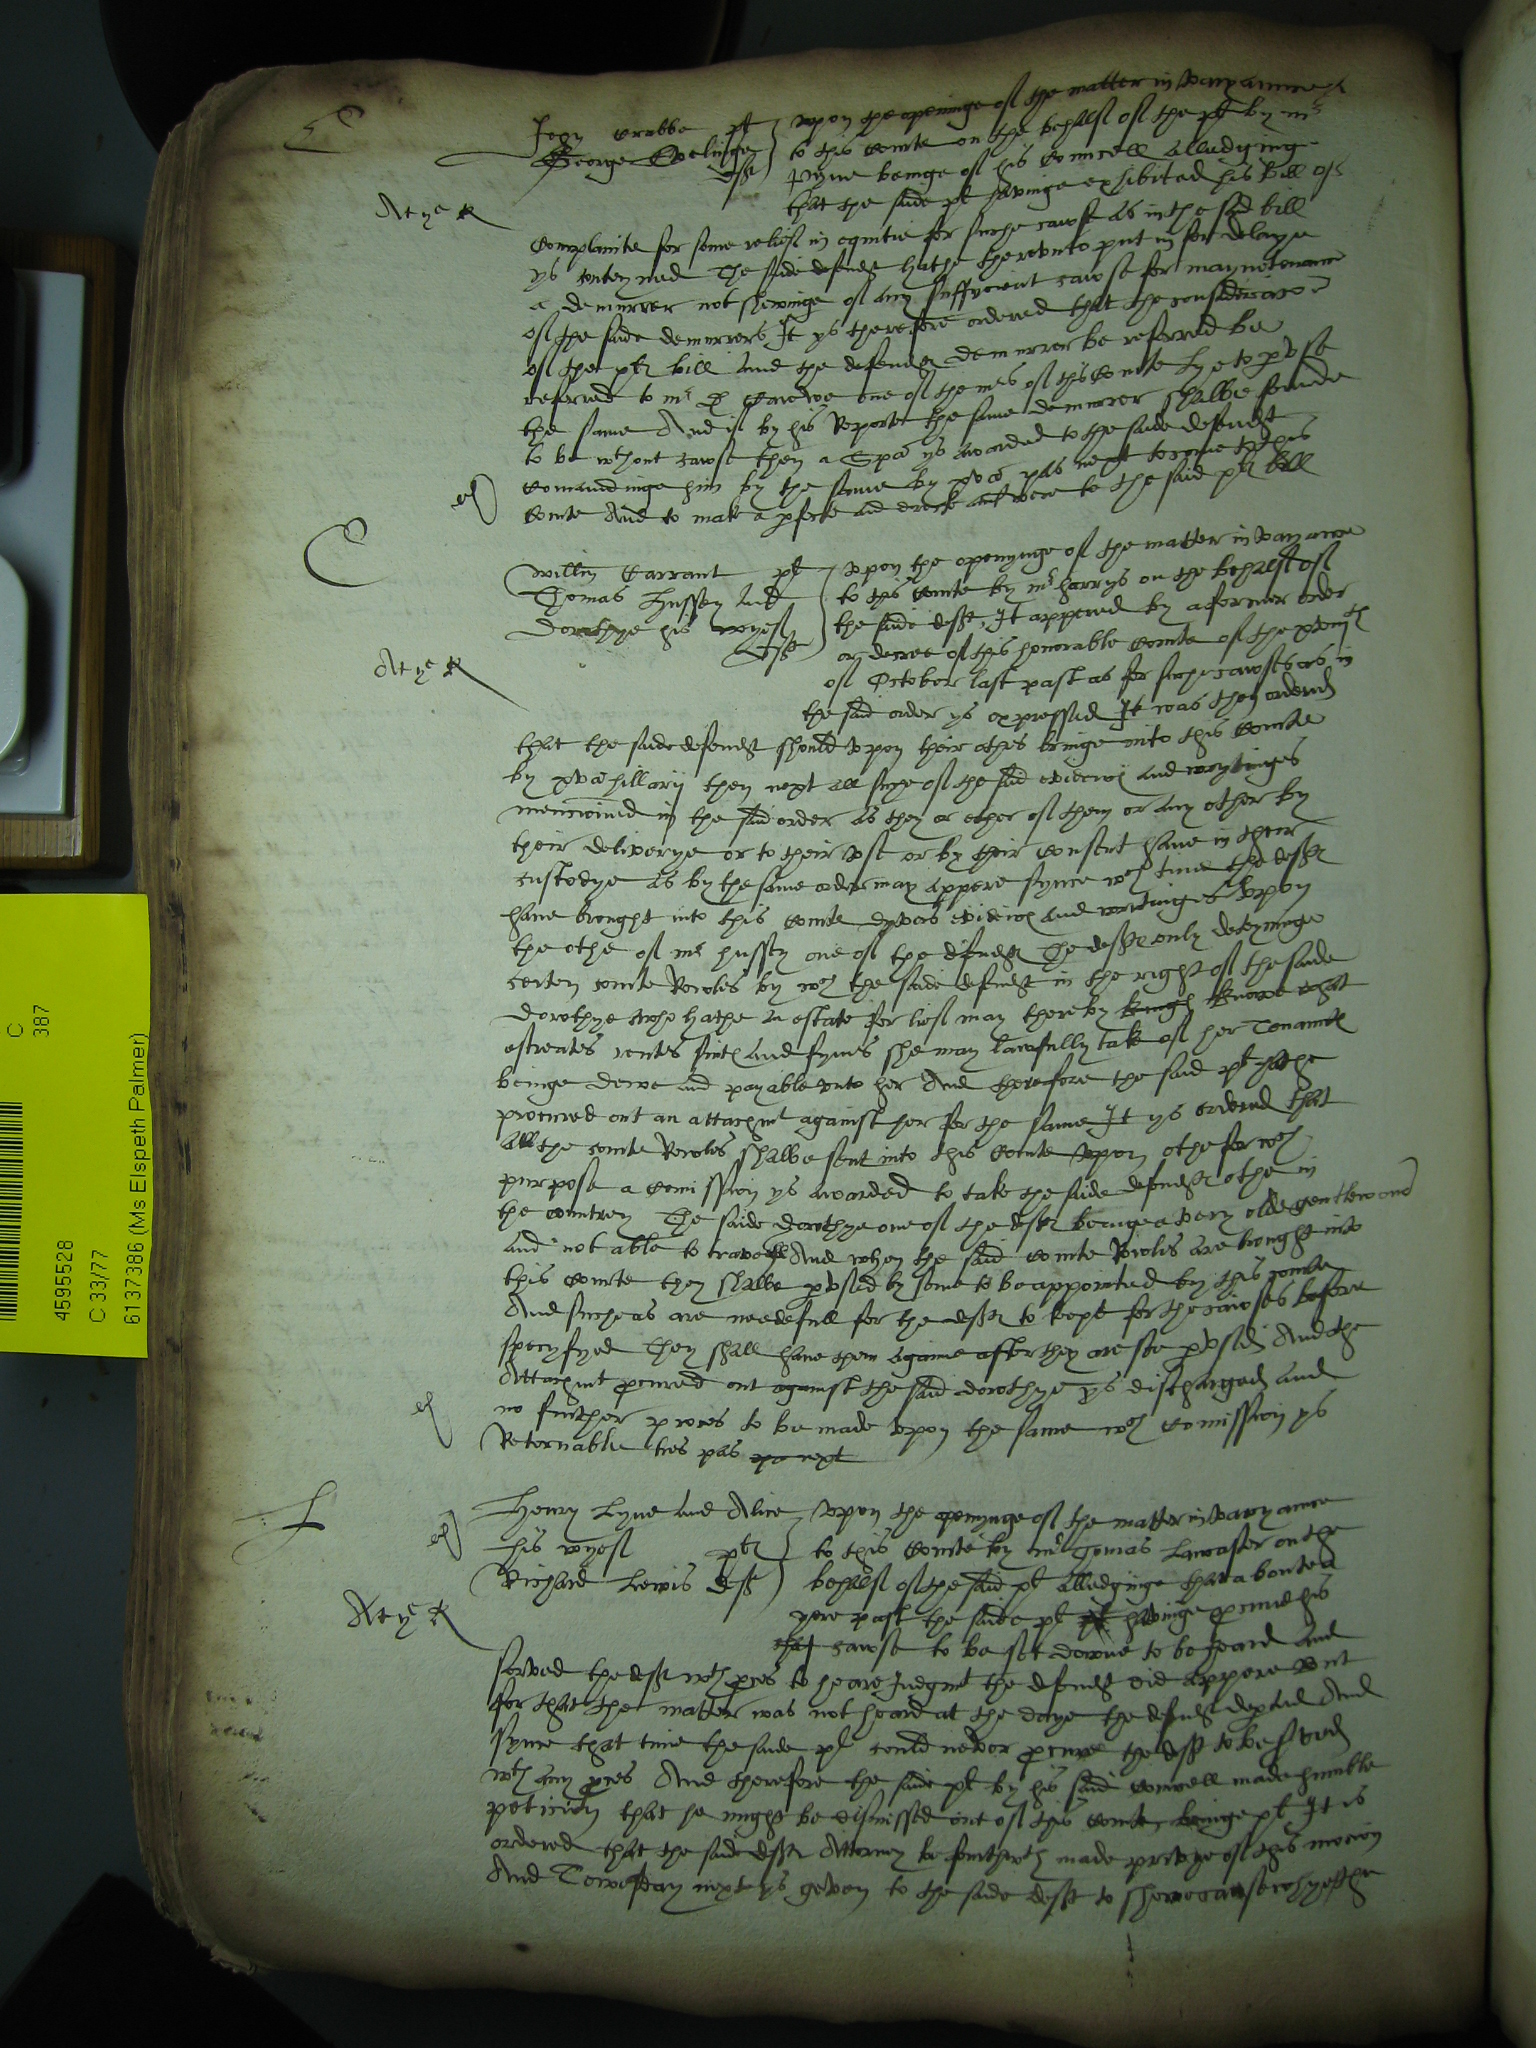 C
John Crabbe plt
George Evelinge
deft
Upon the openinge of the matter in varyannce
to this Courte on the behalf of the plt by mr
Pyne beinge of his Councell alledginge
that the saide plt havinge exhibited his bill of
At ye R
Complainte for some relief in equitie for suche cawse as in the said bill
ys conteyned The saide defendt hathe thereunto put in for delaye
a demurrer not shewinge of any suffycient cawse for mayntenance
of the saide demurrers It ys therefore ordered that the consideracon
of the plts bill and the defendts demurrer be referred be
referred to mr D Carewe one of the mrs of this Courte Hye to pvse
the same And if by his Reporte the same demurrer shalbe founde
to be wthout cawse then a Spa ys awarded to the saide defendt
Comaundinge him by the same by xva pas next to come to this
Courte And to make a pfecte and directe answere to the said plts bill
ex
C
Willm Carrant plt
Thomas Hussey and
Dorothye his wyef
defts
Upon the openynge of the matter in varyance
to this Courte by mr harrys on the behalf of
the saide defts, It appered by a former order
or decree of this honorable Courte of the xxmth
of October last past as for suche cawses as in
the said order ys expressed It was then ordered
At ye R
that the saide defendts should upon their othes bringe into this Courte
by xva hillarij then next all suche of the said evidence and wrytinges
mencioned in the said order as they or ether of them or any other by
their deliverye or to their use or by their consent have in their
custodye as by the same order may appere synce wch time the defts
have brought into this Courte dyvers evidence and wrytinges upon
the othe of mr hussey one of the defendts The defts only deteyninge
certen courte Rowles by wch the saide defendts in the right of the saide
Dorothye who hathe an estate for lief may thereby knowe what
estreates rentes suite and fynes she may lawfully take of her Tenantes
beinge dewe and payable unto her And therefore the said plt hathe
procured out an attachmt against her for the same It ys ordered that
all the courte Rowles shalbe sent into this Courte upon othe for wch
purpose a Comission ys awarded to take the saide defendts othe in
the countrey The saide dorothye one of the defts beinge a very olde gentlewoma
and not able to travell And when the said Courte Rowles are brought into
this Courte they shalbe pvsed by some to be appointed by this courte
And suche as are needefull for the defts to kepe for the cawses before
specyfyed They shall have them againe after they are soe pvsed And the
Attachmt pcured out against the said dorothye ys discharged and
no further proces to be made upon the same wch Comission ys
Retornable tres pas next
ex
L
ex
Henry Lyne and Alice
his wyef plts
Richard Lewis deft
Upon the openynge of the matter in varyannce
to this Courte by mr Thomas Lancaster on the
behalf of the said plt alledginge that aboute a
yere past the saide plt havinge pcured his
cawse to be set downe to be heard and
At ye R
served the deft wth pces to heare Judgmt the defendt did appere but
for that the matter was not heard at the daye the defendt depted And
synce that time the saide plt could never pcure the deft to be served
wth any pces And therefore the saide plt by his said Councell made humble
peticion that he might be dismissed out of this Courte beinge plt It is
ordered that the saide defts Attorney be fourthwth made privye of this mocion
And Towesday next ys geven to the saide deft to shewe cause whye the
C
387
4595528
C 33/77
6137386 (Ms Elspeth Palmer)